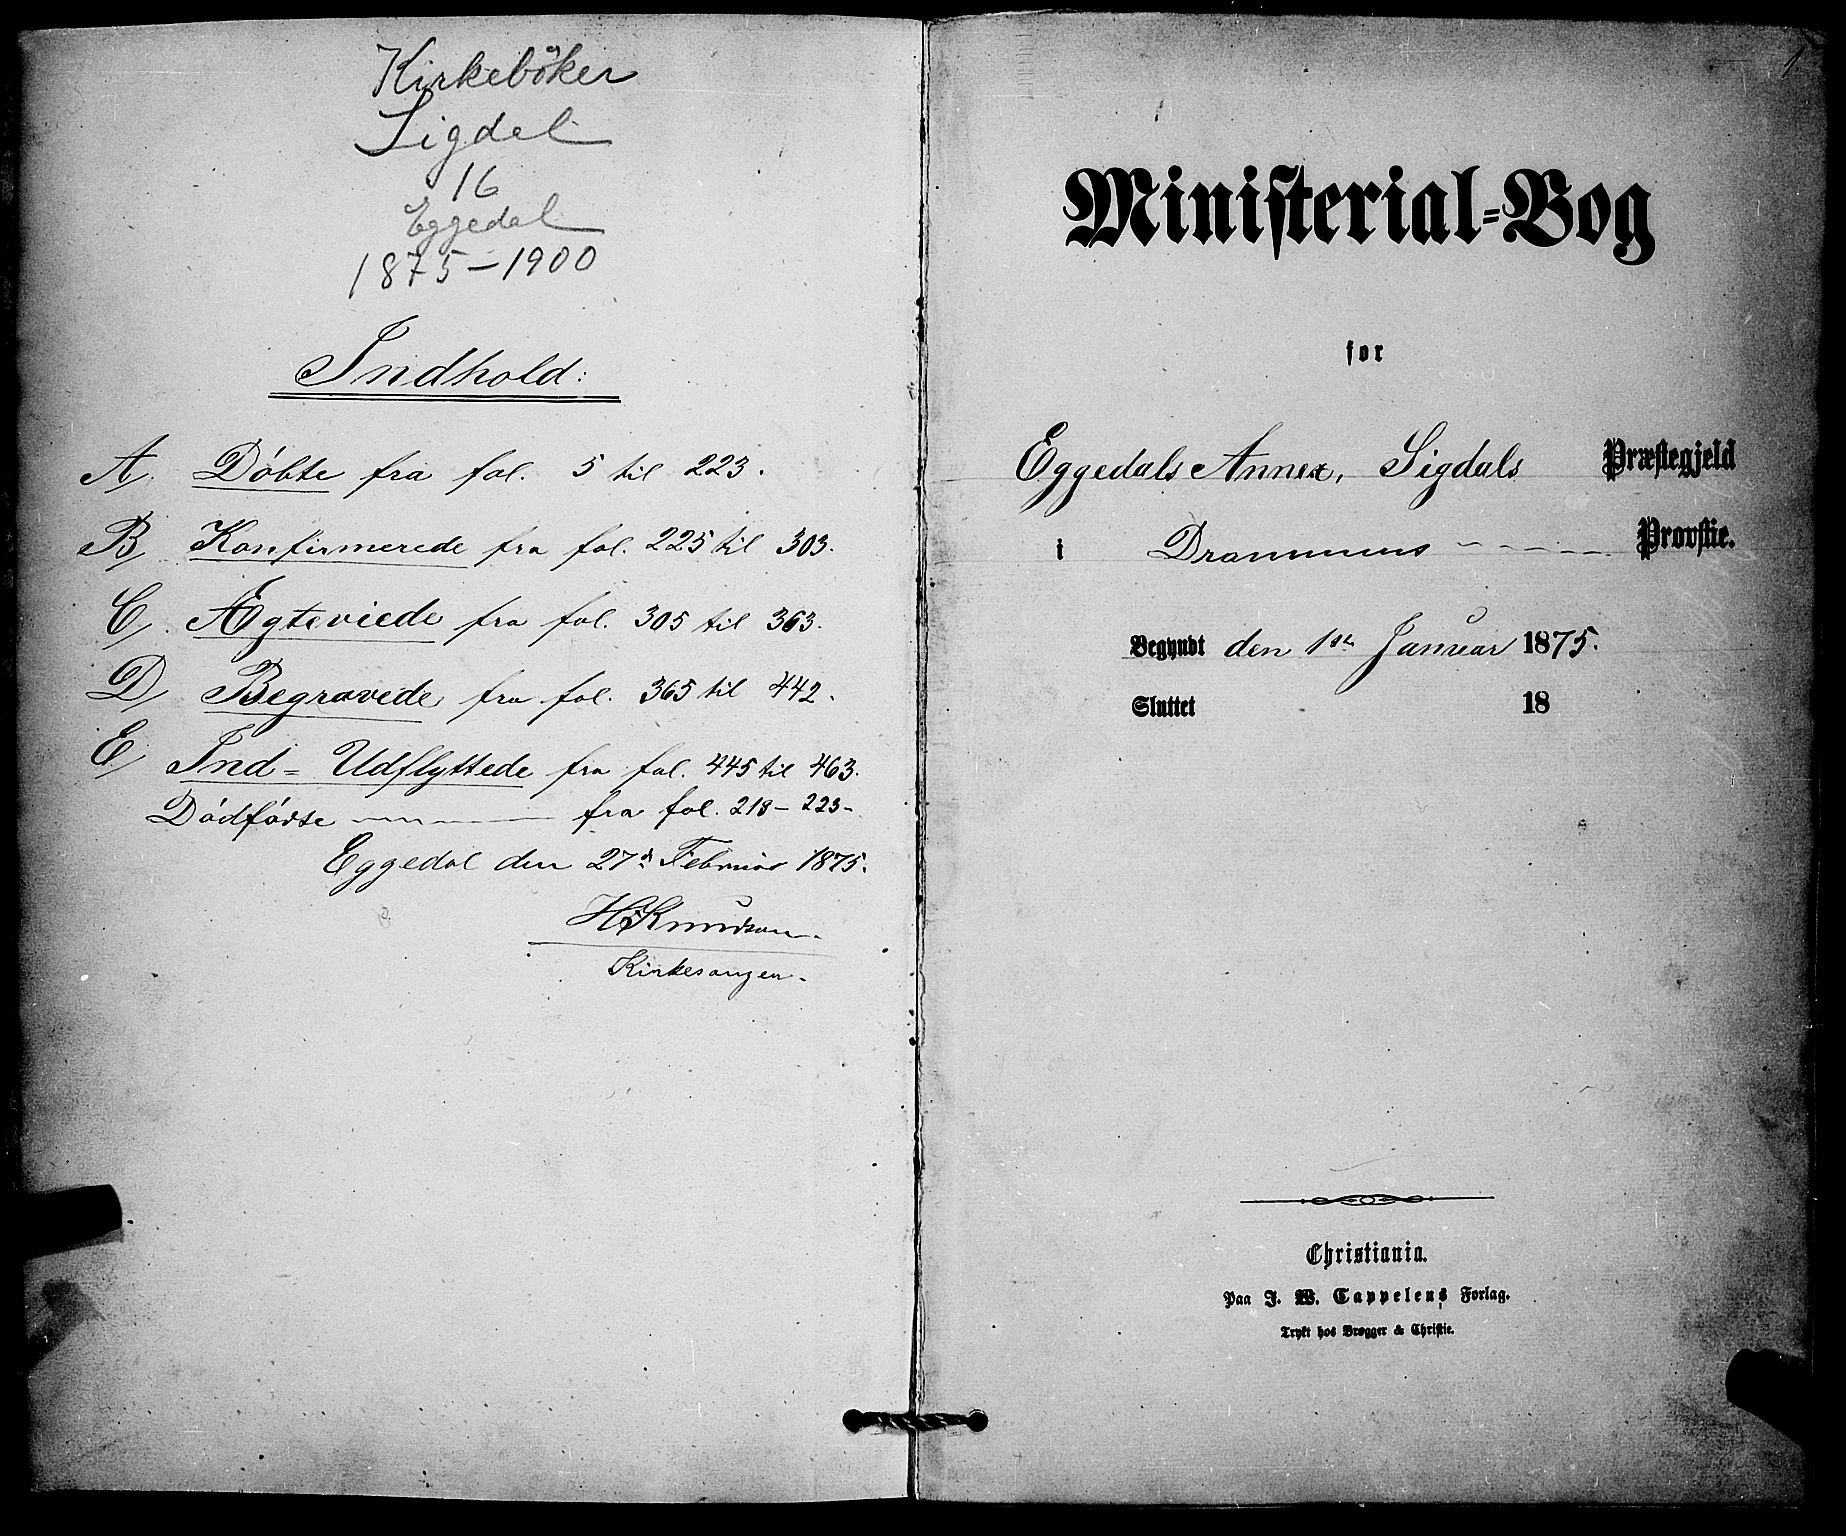 Kirkebøker
Sigdal
16
Eggedal
1875-1900
Indhold:
A. Døbte fra fol. 5 til 223.
B, Konfirmerede fra fol. 225 til 303.
C, Ægteviede fra fol. 305 til 363.
D, Begravede fra fol. 365 til 442.
E, Ind= Udflyttede fra fol. 445 til 463.
Dødfødte fra fol. 218-223-
Eggedal den 27d Februar 1875.
Knudsen.
Kirkesanger.
1.
Ministerial=Bog
for
Eggedals Annex, Sigdals Præstegjeld
i Drammens Provstie.
Begyndt den 1ste Januar 1875.
Sluttet 18
Christiania.
Paa J. W. Cappelens Forlag.
Trykt hos Brøgger & Christie.